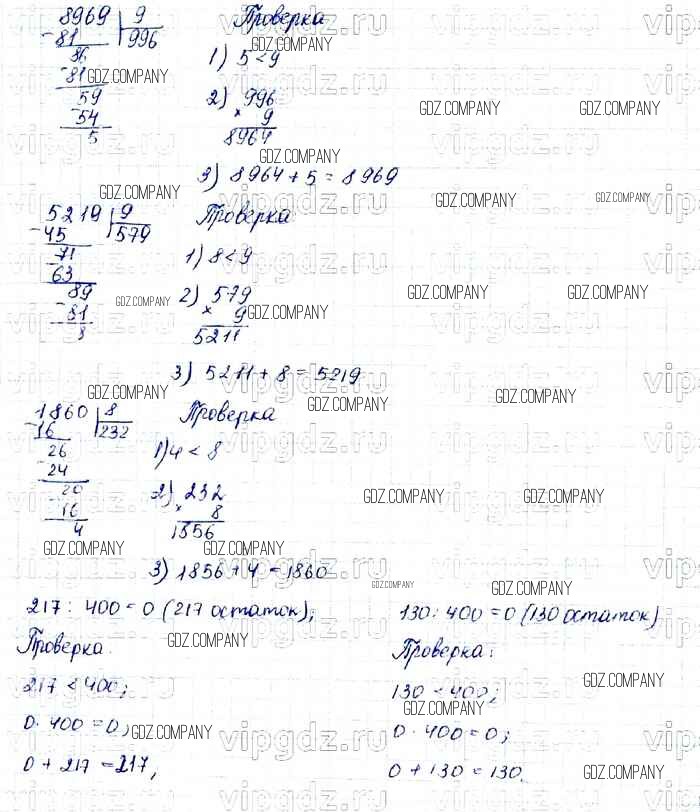 8969 | 9
- 81 | 996
86
- 81
59
- 54
5
Проверка
1) 5 < 9
2) 996
× 9
8964
3) 8964 + 5 = 8969
5219 | 9
- 45 | 579
71
- 63
89
- 81
8
Проверка
1) 8 < 9
2) 579
× 9
5211
3) 5211 + 8 = 5219
1860 | 8
- 16 | 232
26
- 24
20
- 16
4
Проверка
1) 4 < 8
2) 232
× 8
1856
3) 1856 + 4 = 1860
217 : 400 = 0 (217 остаток);
Проверка.
217 < 400;
0 · 400 = 0;
0 + 217 = 217,
130 : 400 = 0 (130 остаток)
Проверка:
130 < 400;
0 · 400 = 0;
0 + 130 = 130.
GDZ.COMPANY
vipgdz.ru